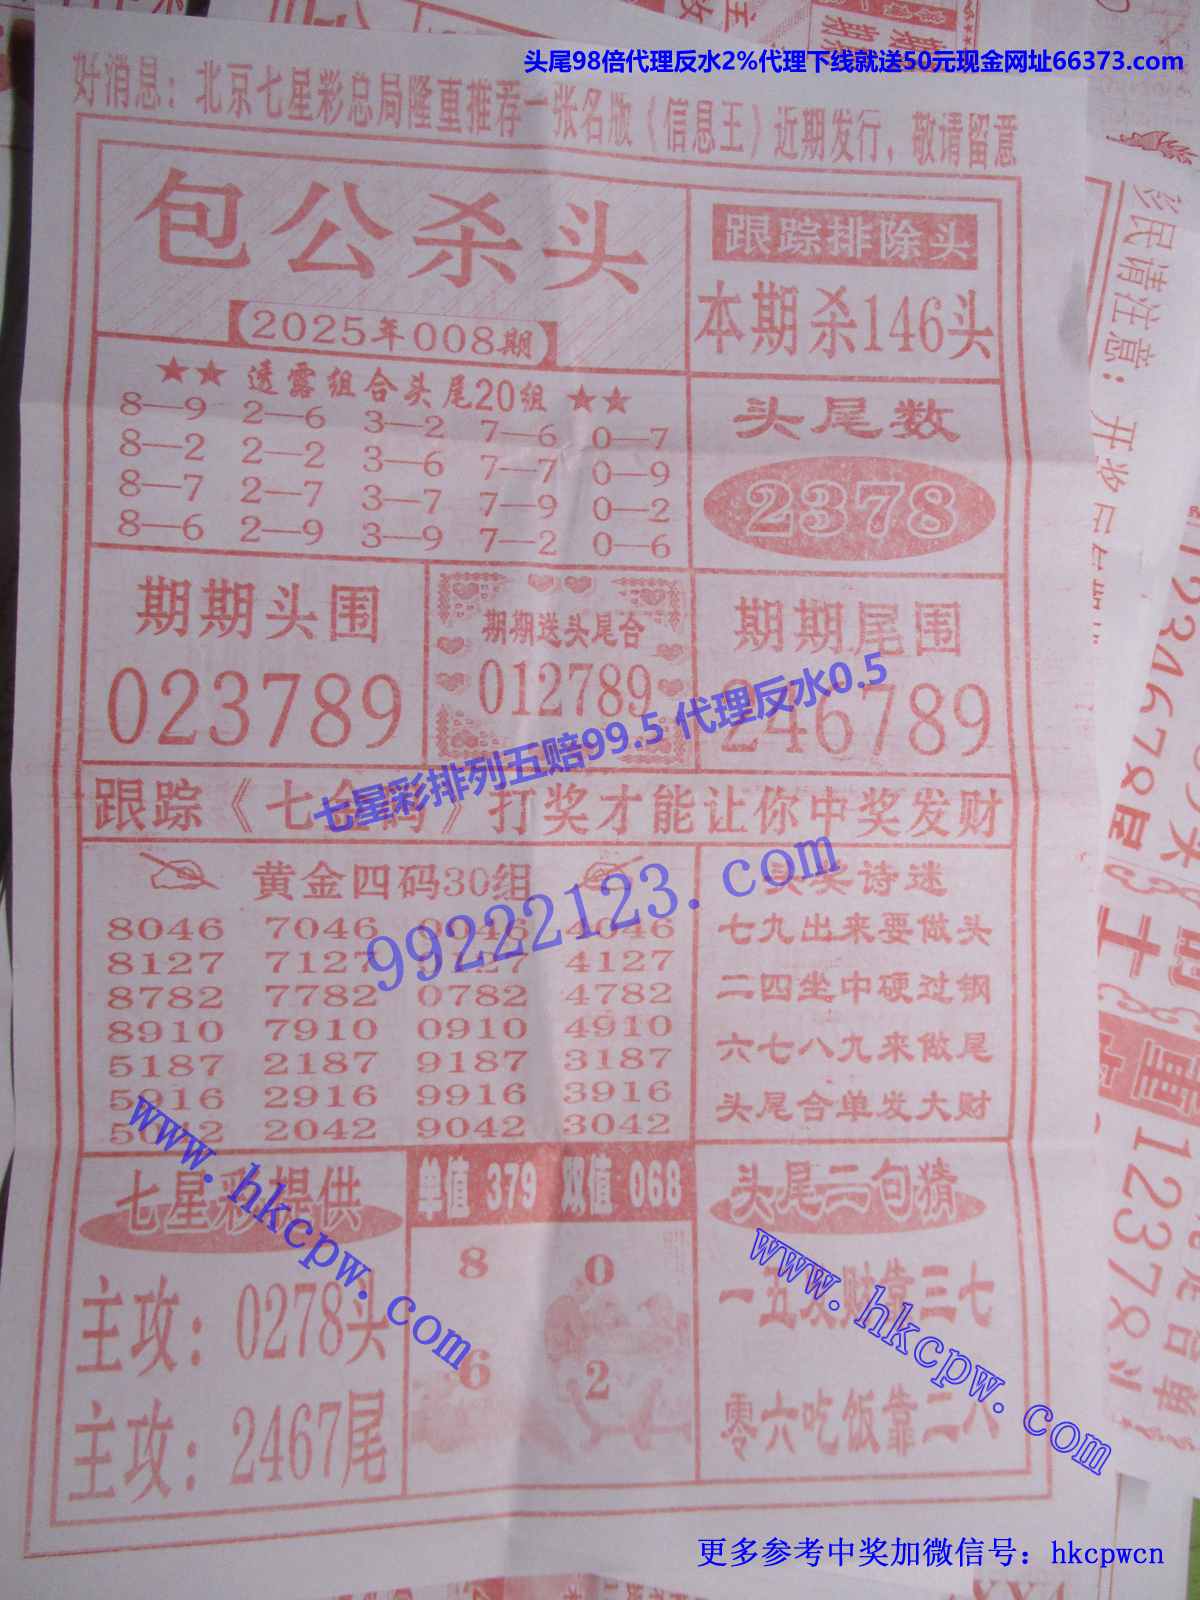 头尾98倍代理反水2%代理下线就送50元现金网址66373.com
好消息：北京七星彩总局隆重推荐一张名版《信息王》近期发行，敬请留意
包公杀头
【2025年008期】
跟踪排除头
本期杀146头
★★ 透露组合头尾20组 ★★
8—9 2—6 3—2 7—6 0—7
8—2 2—2 3—6 7—7 0—9
8—7 2—7 3—7 7—9 0—2
8—6 2—9 3—9 7—2 0—6
头尾数
2378
期期头围
023789
期期送头尾合
012789
期期尾围
246789
七星彩排列五赔99.5 代理反水0.5
跟踪《七 》打奖才能让你中奖发财
99222123.com
黄金四码30组
8046 7046 0046 4046
8127 7127 0127 4127
8782 7782 0782 4782
8910 7910 0910 4910
5187 2187 9187 3187
5916 2916 9916 3916
5042 2042 9042 3042
头奖诗迷
七九出来要做头
二四坐中硬过钢
六七八九来做尾
头尾合单发大财
www.hkcpw.com
七星彩提供
主攻：0278头
主攻：2467尾
单值 379 双值 068
8 0
6 2
头尾二句猜
一五 财靠三七
零六吃饭靠二八
www.hkcpw.com
更多参考中奖加微信号：hkcpwcn
彩民请注意：开奖日